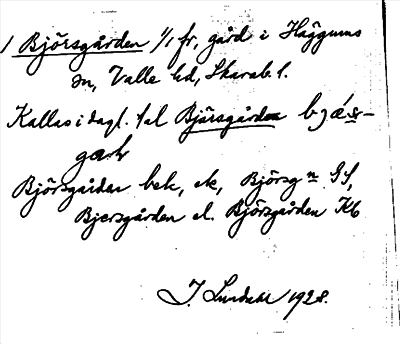 1 Björsgården 1/1 fr. gård i Häggums
sn, Valle hd, Skarab. l.
Kallas i dagl. tal Björsgården
gaʀ
Björsgården bek, ek, Björsg n GS,
Bjersgården el. Björsgården Kb
J. Lundahl 1928.